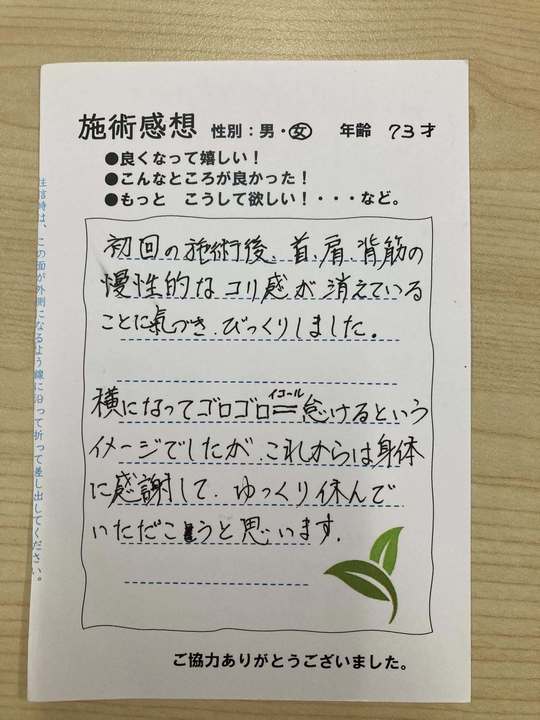 施術感想 性別：男・女 年齢 73才
●良くなって嬉しい！
●こんなところが良かった！
●もっと こうして欲しい！・・・など。
初回の施術後、首、肩、背筋の
慢性的なコリ感が消えている
ことに氣づき、びっくりしました。
横になってゴロゴロ＝怠けるという
イコール
イメージでしたが、これからは身体
に感謝して、ゆっくり休んで
いただこうと思います。
ご協力ありがとうございました。
返信時は、この面が外側になるよう線に沿って折って差し出してください。